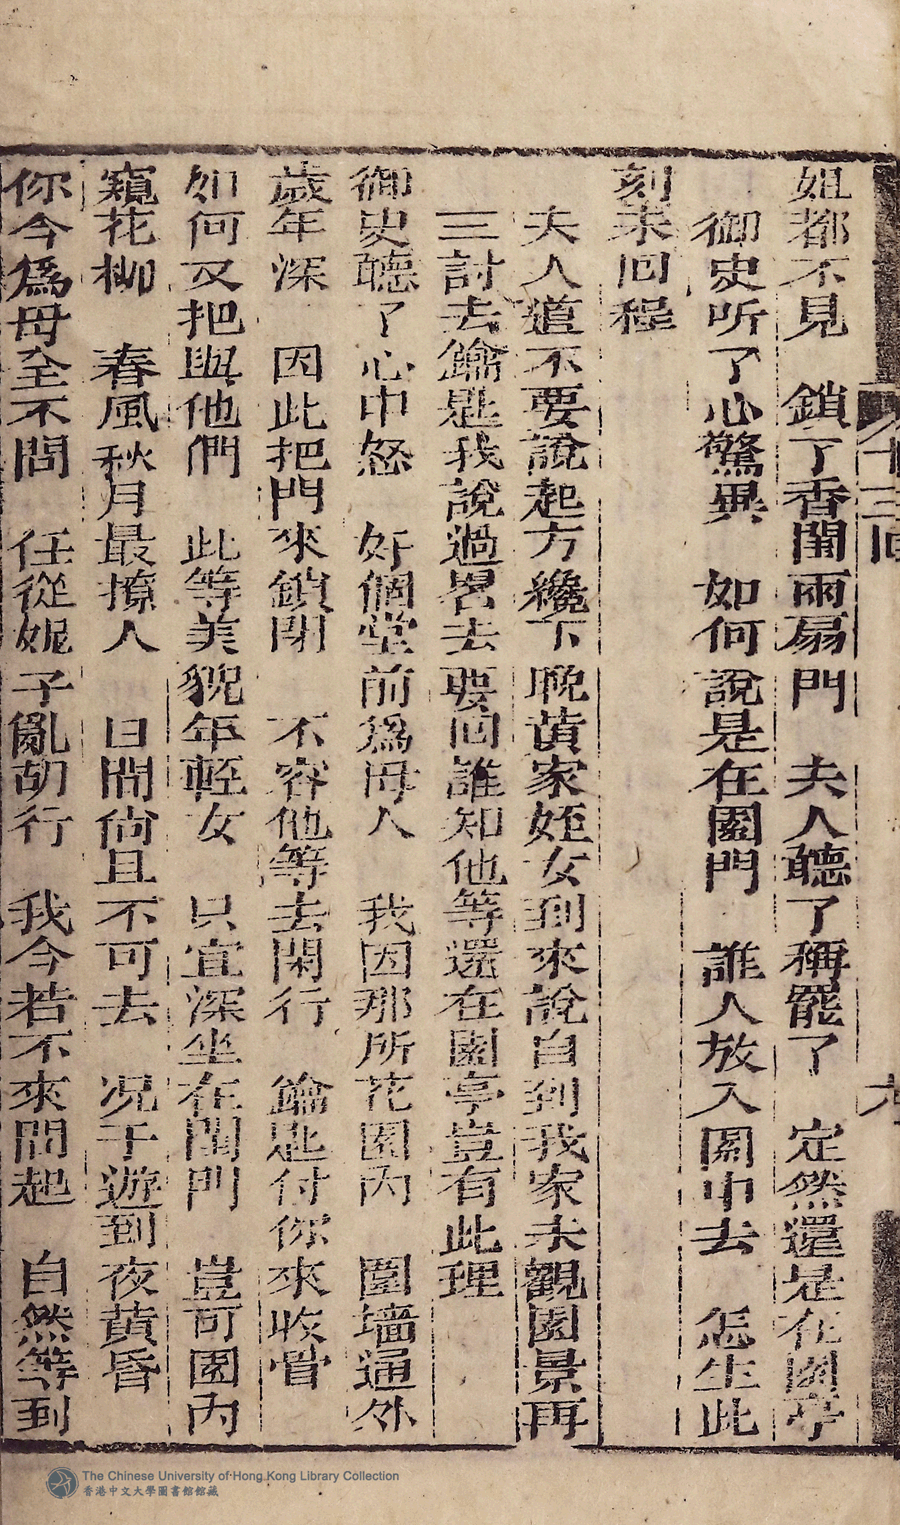 十三回
六
姐都不見　鎖了香閨兩扇門　夫人聽了稱罷了　定然還是在園亭
御史听了心驚異　如何說是在園門　誰人放入園中去　怎生此
刻未回程
夫人道不要說起方纔下晚黃家姪女到來說自到我家未觀園景再
三討去鑰匙我說過畧去要回誰知他等還在園亭豈有此理
御史聽了心中怒　好個堂前為母人　我因那所花園內　圍墻通外
歲年深　因此把門來鎖閉　不容他等去閑行　鑰匙付你來收管
如何又把與他們　此等美貌年輕女　只宜深坐在閨門　豈可園內
窺花柳　春風秋月最撩人　日間尚且不可去　况于遊到夜黃昏
你今爲母全不問　任從妮子亂胡行　我今若不來問起　自然等到
The Chinese University of Hong Kong Library Collection
香港中文大學圖書館館藏